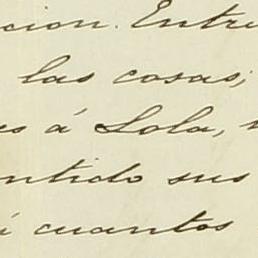 cion. Entre
las cosas;
es á Lola,
ntido sus
á cuantos